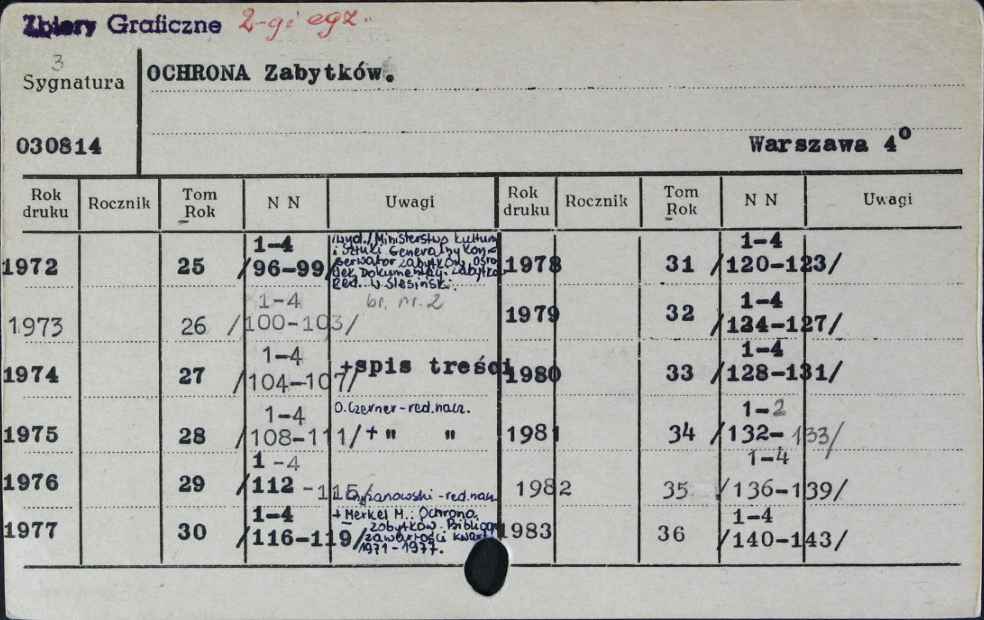 Zbiory Graficzne 2-gi egz.
3
Sygnatura
OCHRONA Zabytków.
030814
Warszawa 4°
Rok druku Rocznik Tom Rok N N Uwagi Rok druku Rocznik Tom Rok N N Uwagi
1972 25 1-4 /96-99/
/wyd./Ministerstwo Kultury
i Sztuki Generalny Kon-
serwator zabytków, Ośro
dek Dokumentacj. Zabytków
Red. W. Ślesiński.
1973 26 1-4 /100-103/ br. nr. 2
1974 27 1-4 /104-107/ +spis treści
1975 28 1-4 /108-111/ O. Czerner - red. nacz.
+ " "
1976 29 1-4 /112-115/ - red. nacz.
1977 30 1-4 /116-119/
+ Merkel M.: Ochrona
zabytków. Bibliogr.
zawartości kwart.
1971-1977.
1978 31 1-4 /120-123/
1979 32 1-4 /124-127/
1980 33 1-4 /128-131/
1981 34 1-2 /132-133/
1982 35 1-4 /136-139/
1983 36 1-4 /140-143/